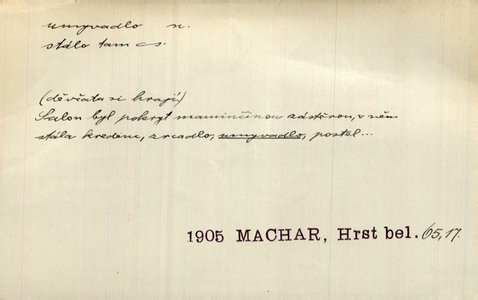 umyvadlo n.
stálo tam cs.
(děvčata si hrají)
Salon byl pokryt maminčinou zástěrou, v něm
stála kredenc, zrcadlo, umyvadlo, postel...
1905 MACHAR, Hrst bel. 65,17.